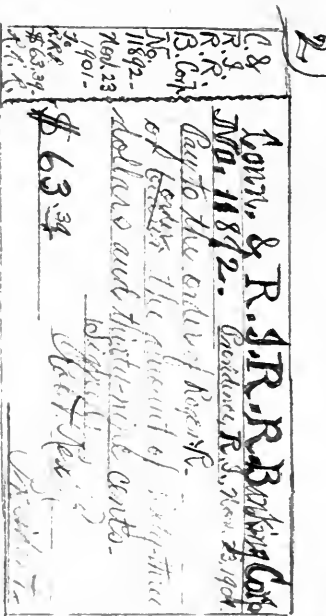 2)
C. &
R. I.
R. R.
B. Corp.
No.
11892-
Nov. 23
1901-
To
R.R.R.
$63.39
Conn. & R. I. R. R. Banking Corp.
No. 11892. Providence, R. I., Nov. 23, 1901
Pay to the order of Roger R.
the amount of sixty-three
dollars and thirty-nine cents-
$63.39